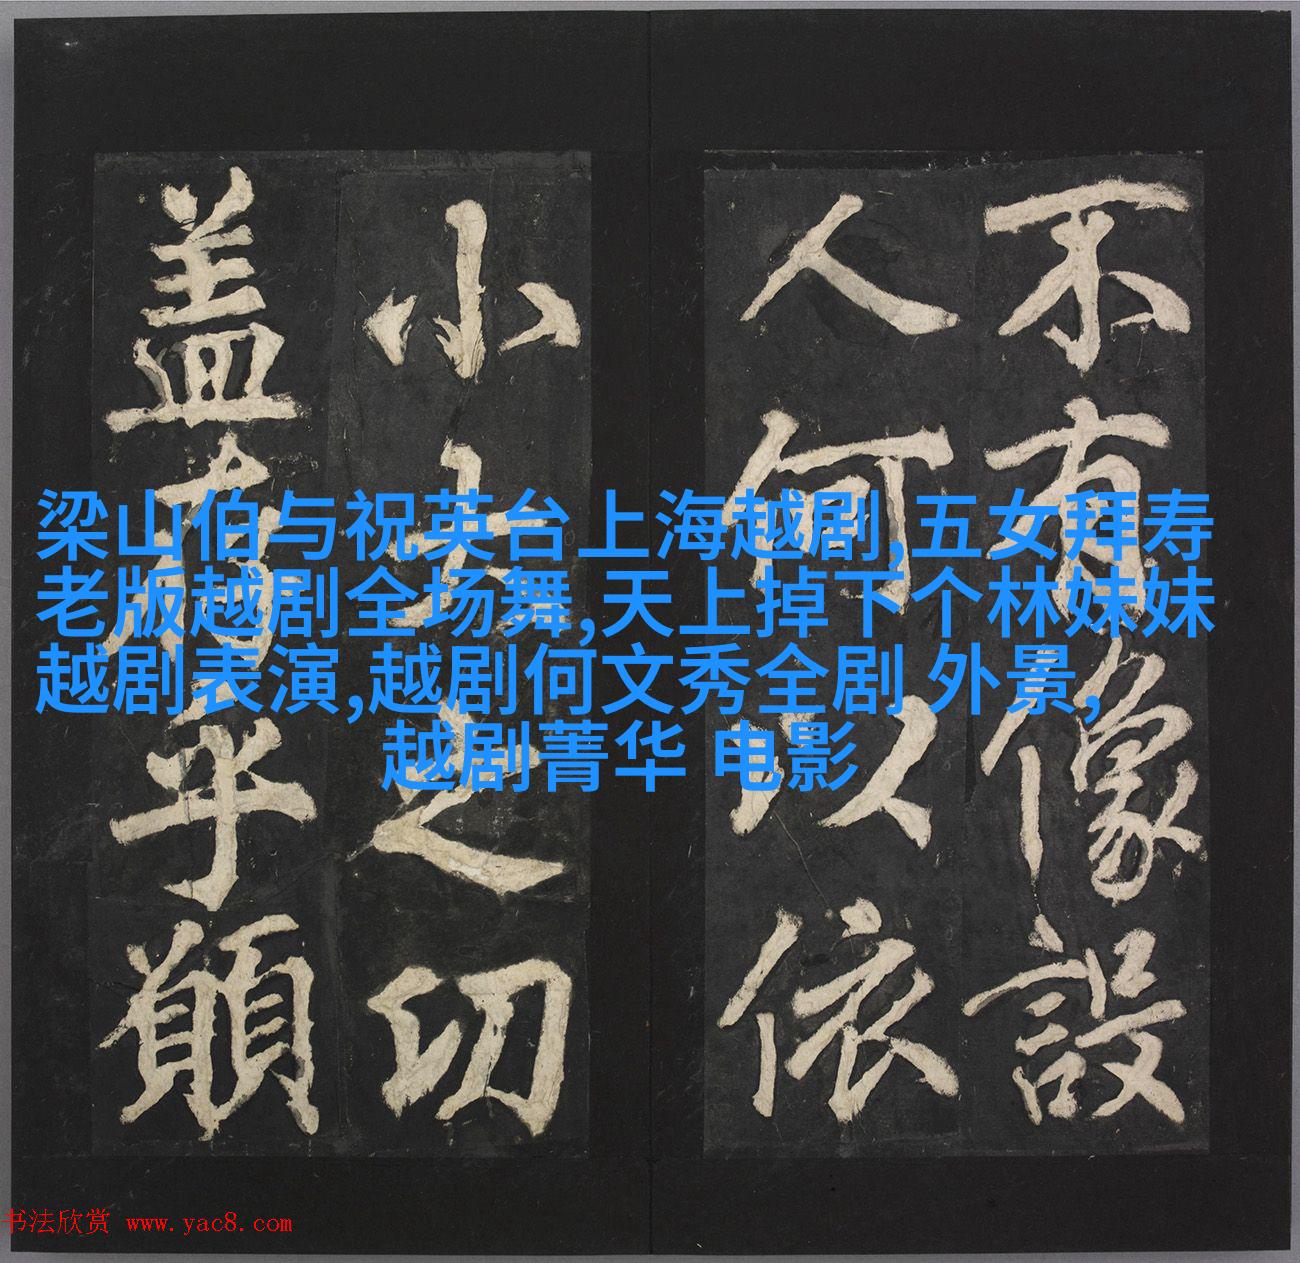 梁山伯与祝英台上海越剧,五女拜寿
老版越剧全场舞,天上掉下个林妹妹
越剧表演,越剧何文秀全剧 外景,
越剧菁华 电影
不有像設
人何以依
小大之切
盖有乎
书法欣赏 www.yac8.com